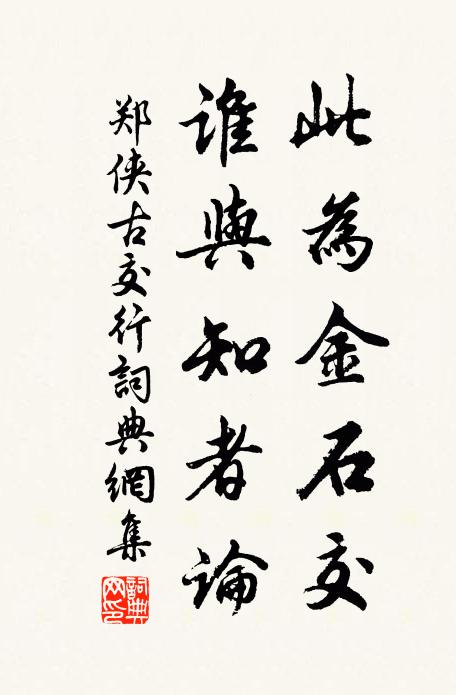 此為金石交
誰與知者論
郑侠古交行詞典網集
詞典网印